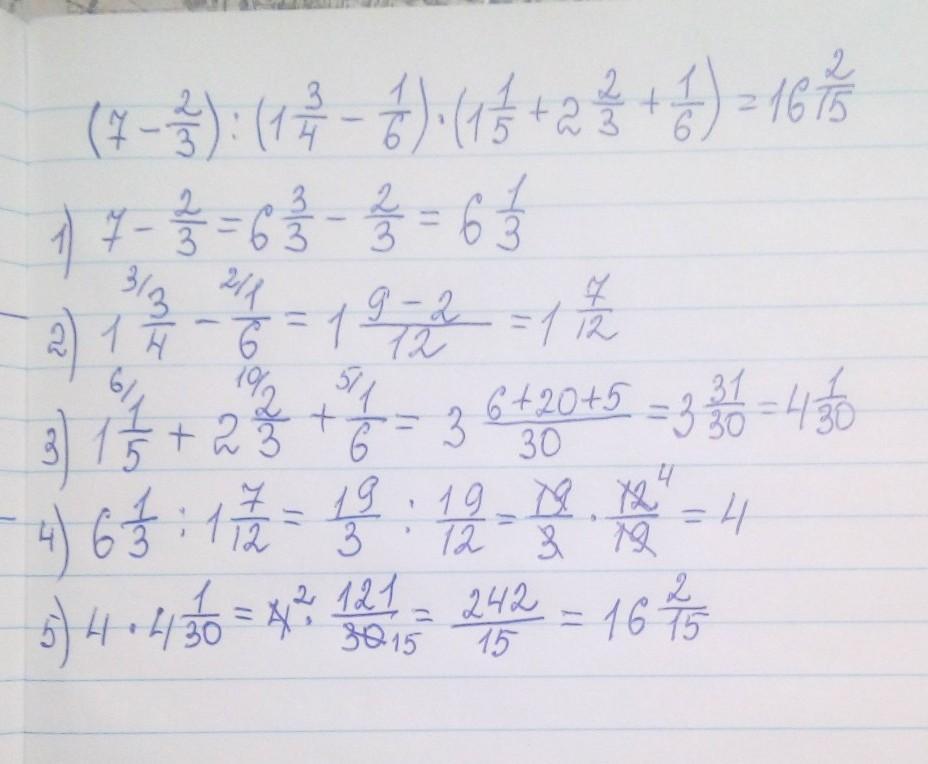 (7 - 2/3) : (1 3/4 - 1/6) · (1 1/5 + 2 2/3 + 1/6) = 16 2/15
1) 7 - 2/3 = 6 3/3 - 2/3 = 6 1/3
2) 1 3/ 3/4 - 2/ 1/6 = 1 (9 - 2)/12 = 1 7/12
3) 1 6/ 1/5 + 2 10/ 2/3 + 5/ 1/6 = 3 (6+20+5)/30 = 3 31/30 = 4 1/30
4) 6 1/3 : 1 7/12 = 19/3 : 19/12 = 19/3 · 12 4/19 = 4
5) 4 · 4 1/30 = 4 2 · 121/30 15 = 242/15 = 16 2/15